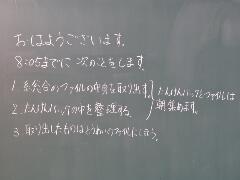 おはようございます。
8:05までに次のことをします。
1. 系総合のファイルの中身を取り出す。
2. たんけんバッグの中を整理する
3. 取り出したものは
たんけんバッグとファイルは
朝集めます。